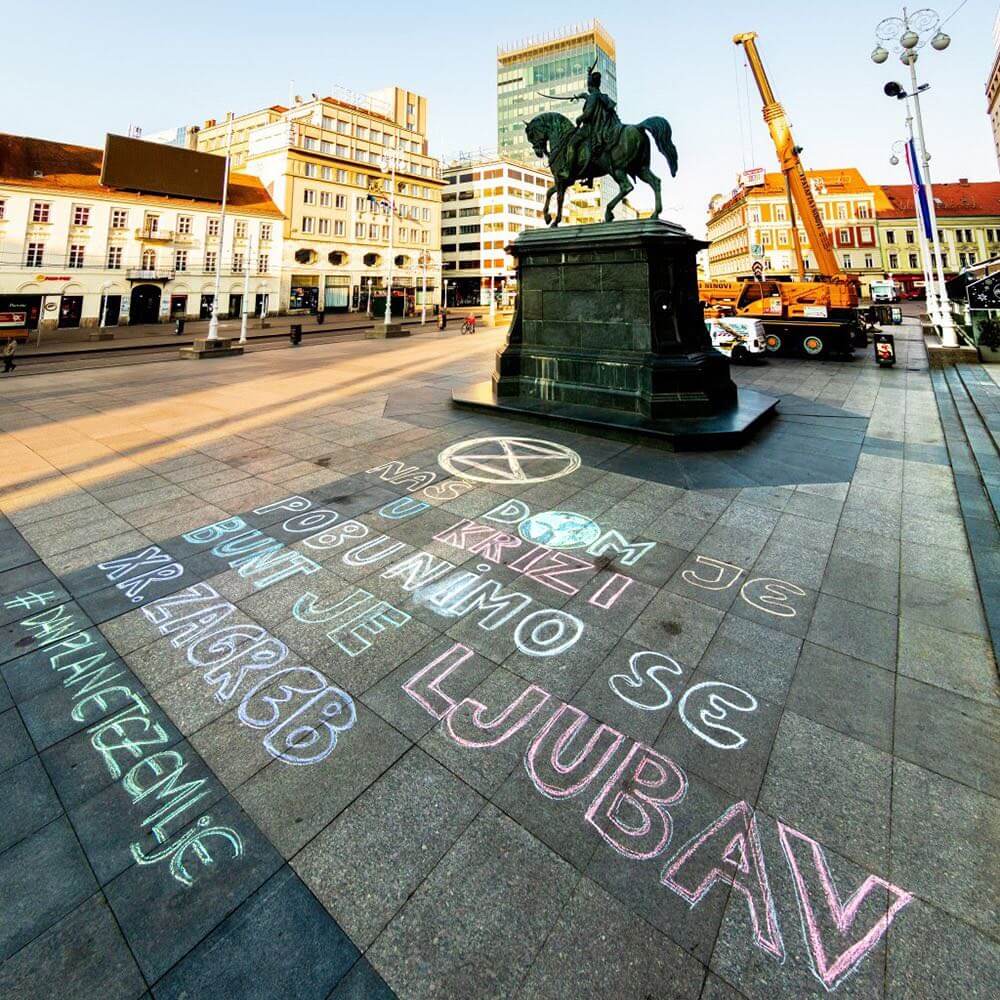 NAŠ DOM JE
U KRIZI
POBUNIMO SE
BUNT JE LJUBAV
XR.ZAGREB
#DANPLANETEZEMLJE